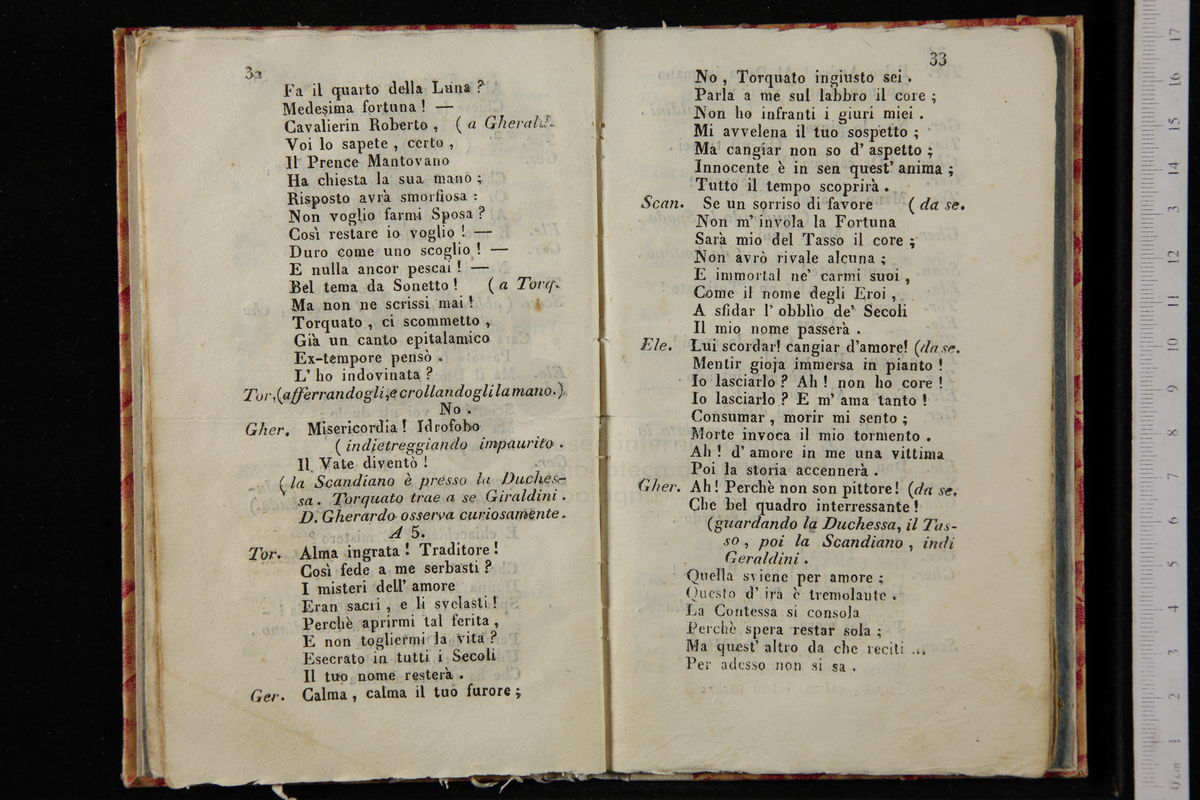 32
Fa il quarto della Luna ?
Medesima fortuna ! —
Cavalierin Roberto , ( a Gherald.
Voi lo sapete , certo ,
Il Prence Mantovano
Ha chiesta la sua mano ;
Risposto avrà smorfiosa :
Non voglio farmi Sposa ?
Così restare io voglio ! —
Duro come uno scoglio ! —
E nulla ancor pescai ! —
Bel tema da Sonetto ! ( a Torq.
Ma non ne scrissi mai !
Torquato , ci scommetto ,
Già un canto epitalamico
Ex-tempore pensò .
L' ho indovinata ?
Tor. (afferrandogli, e crollandogli la mano.)
No .
Gher. Misericordia ! Idrofobo
( indietreggiando impaurito .
Il Vate diventò !
( la Scandiano è presso la Duches-
sa . Torquato trae a se Giraldini .
D. Gherardo osserva curiosamente .
A 5.
Tor. Alma ingrata ! Traditore !
Così fede a me serbasti ?
I misteri dell' amore
Eran sacri , e li svelasti !
Perchè aprirmi tal ferita ,
E non togliermi la vita ?
Esecrato in tutti i Secoli
Il tuo nome resterà .
Ger. Calma , calma il tuo furore ;
33
No , Torquato ingiusto sei .
Parla a me sul labbro il core ;
Non ho infranti i giuri miei .
Mi avvelena il tuo sospetto ;
Ma cangiar non so d' aspetto ;
Innocente è in sen quest' anima ;
Tutto il tempo scoprirà .
Scan. Se un sorriso di favore ( da se.
Non m' invola la Fortuna
Sarà mio del Tasso il core ;
Non avrò rivale alcuna ;
E immortal ne' carmi suoi ,
Come il nome degli Eroi ,
A sfidar l' obblio de' Secoli
Il mio nome passerà .
Ele. Lui scordar! cangiar d'amore! (da se.
Mentir gioja immersa in pianto !
Io lasciarlo ? Ah ! non ho core !
Io lasciarlo ? E m' ama tanto !
Consumar , morir mi sento ;
Morte invoca il mio tormento .
Ah ! d' amore in me una vittima
Poi la storia accennerà .
Gher. Ah! Perchè non son pittore! (da se.
Che bel quadro interressante !
(guardando la Duchessa, il Tas-
so , poi la Scandiano , indi
Geraldini .
Quella sviene per amore ;
Questo d' ira è tremolante .
La Contessa si consola
Perchè spera restar sola ;
Ma quest' altro da che reciti ...
Per adesso non si sa .